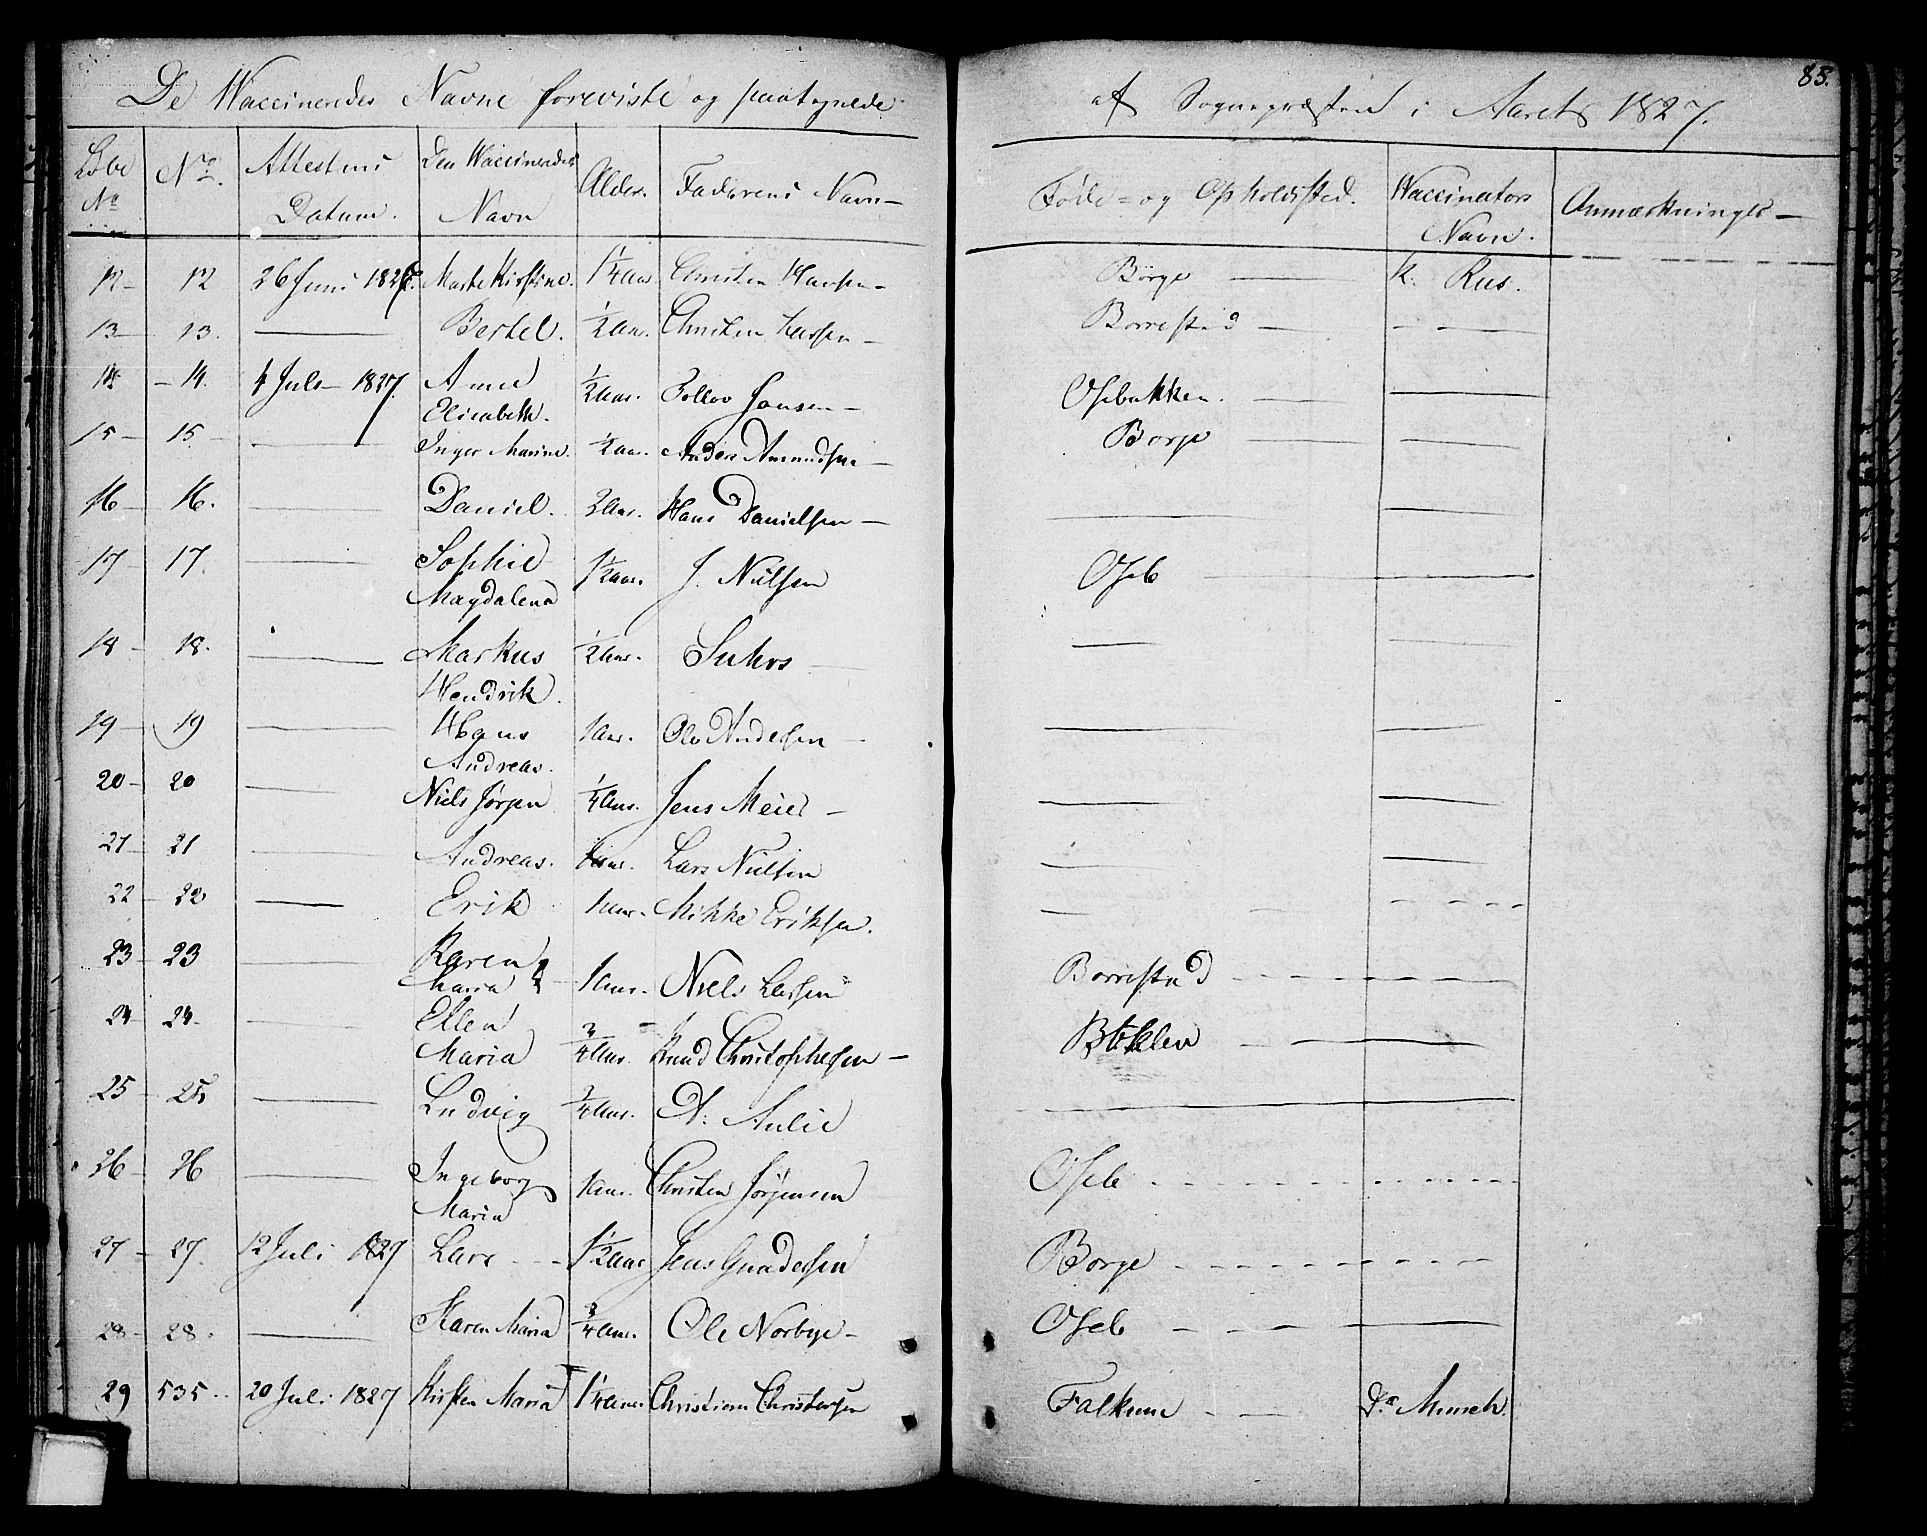 85.
De Waccineredes Navne foreviste og paategnede af Sognepræsten i Aaret 1827.
Løbe No | No. | Attestens Datum. | Den Waccineredes Navn | Alder. | Faderens Navn — | Føde- og Opholdsted. | Waccinators Navn. | Anmærkninger —
12 — | 12 | 26 Juni 1827. | Marte Kirstine. | 1¼ aar | Christen Hansen — | Borge — | K. Rus.
13 — | 13. | — | Bertel. | ½ aar. | Christen Larsen — | Borrestad — | — —
14 | — 14. | 4 Juli — 1827. | Anne Elisabeth. | ½ aar. | Tollov Jonsen — | Osebakken. — | —
15 — | 15 — | — | Inger Marine. | ½ aar. | Anders Amundsen — | Borge — | —
16 — | 16. | — | Daniel. | 2 aar. | Hans Danielsen — | — | —
17 — | 17. | — | Sophie Magdalena | 1½ aar. | J. Nielsen | Oseb — | —
18 — | 18. | — | Markus Hendrik. | ½ aar. | Suhrs — | — | —
19 — | 19 | — | Hans Andreas. | 1 aar. | Ole Andersen — | — | —
20 — | 20 | — | Niels Jörgen | ¼ aar. | Jens Meier — | — | —
21 — | 21 | — | Andreas. | aar. | Lars Nielsen | — | —
22 — | 22 | — | Erik | 1 aar. | Mikkel Eriksen. | — | — — — —
23 — | 23 | — | Karen Maria | 1 aar. | Niels Larsen | Borrestad — — — | —
24 — | 24. | — | Ellen Maria | ¾ aar. | Knud Christophersen — | — | —
25 — | 25 | — | Ludvig | ¾ aar. | A. Aulie | — | —
26 — | 26 | — | Ingeborg Maria | 1 aar. | Christen Jörgensen | Oseb — — — | — — —
27 — | 27. | 12 Juli 1827 | Lars — — | 1½ aar | Jens Gundersen | Borge — — — | — — —
28 — | 28. | — | Karen Maria | ¾ aar. | Ole Norbye — | Oseb — — | —
29 | 535. | 20 Juli 1827 | Kirsten Maria | 1¼ aar. | Christian Christensen | Falkum — — | Dr. Munch.